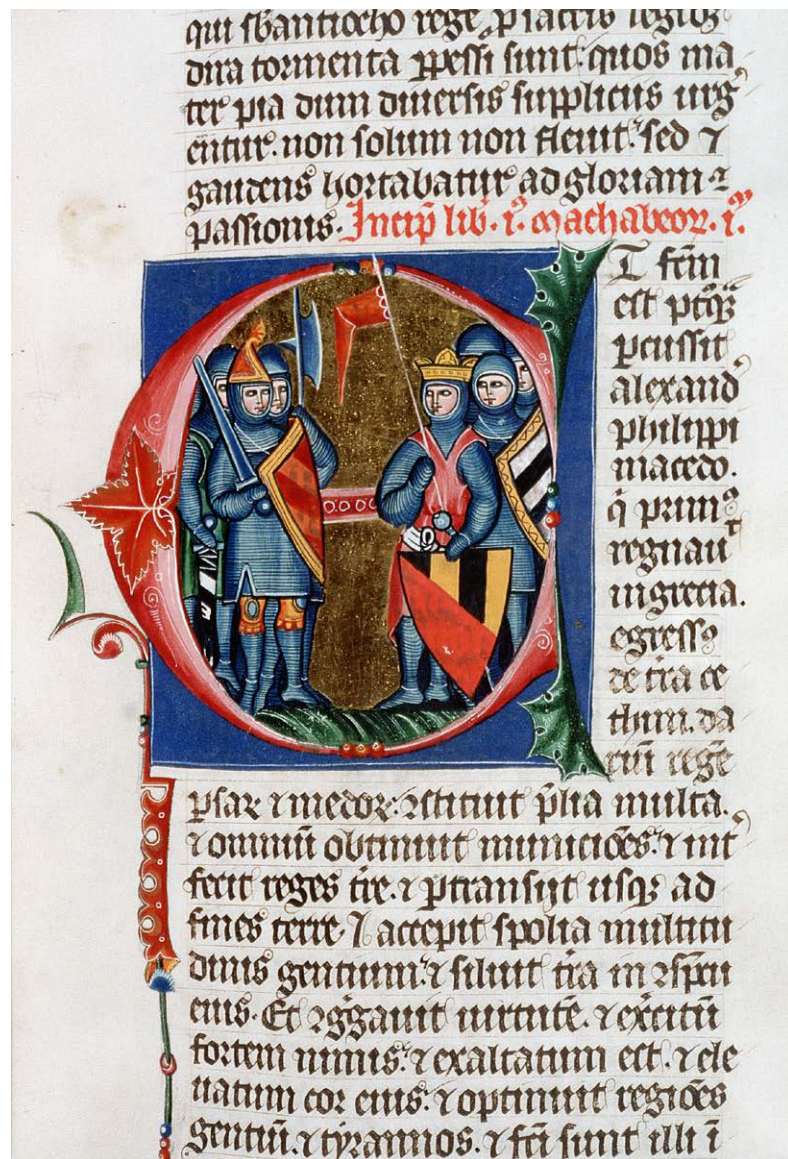 dira tormenta ꝑpessi sunt: quos ma
ter pia dum diuersis suppliciis urg
entur. non solum non fleuit. sed ⁊
gaudens hortabatur ad gloriam
passionis. Incip lib. i. machabeor. i.
Et fcm
est
pcussit
alexand
philippi
macedo.
q prim
regnauit
in grecia.
egressus
de tra ce
thim. da
rium rege
psar ⁊ medor. ⁊stituit plia multa.
⁊ omniū obtinuit municiões. ⁊ int
fecit reges tre. ⁊ ptransiit usq ad
fines terre. Et accepit spolia multitu
dinis gentium. ⁊ siluit tra in ⁊spcu
eius. Et ⁊ggauit uirtutē. ⁊ exercitū
fortem nimis. ⁊ exaltatum est. ⁊ ele
uatum cor eius. ⁊ optinuit regiões
gentiū. ⁊ tyrannos. ⁊ fci sunt illi ī